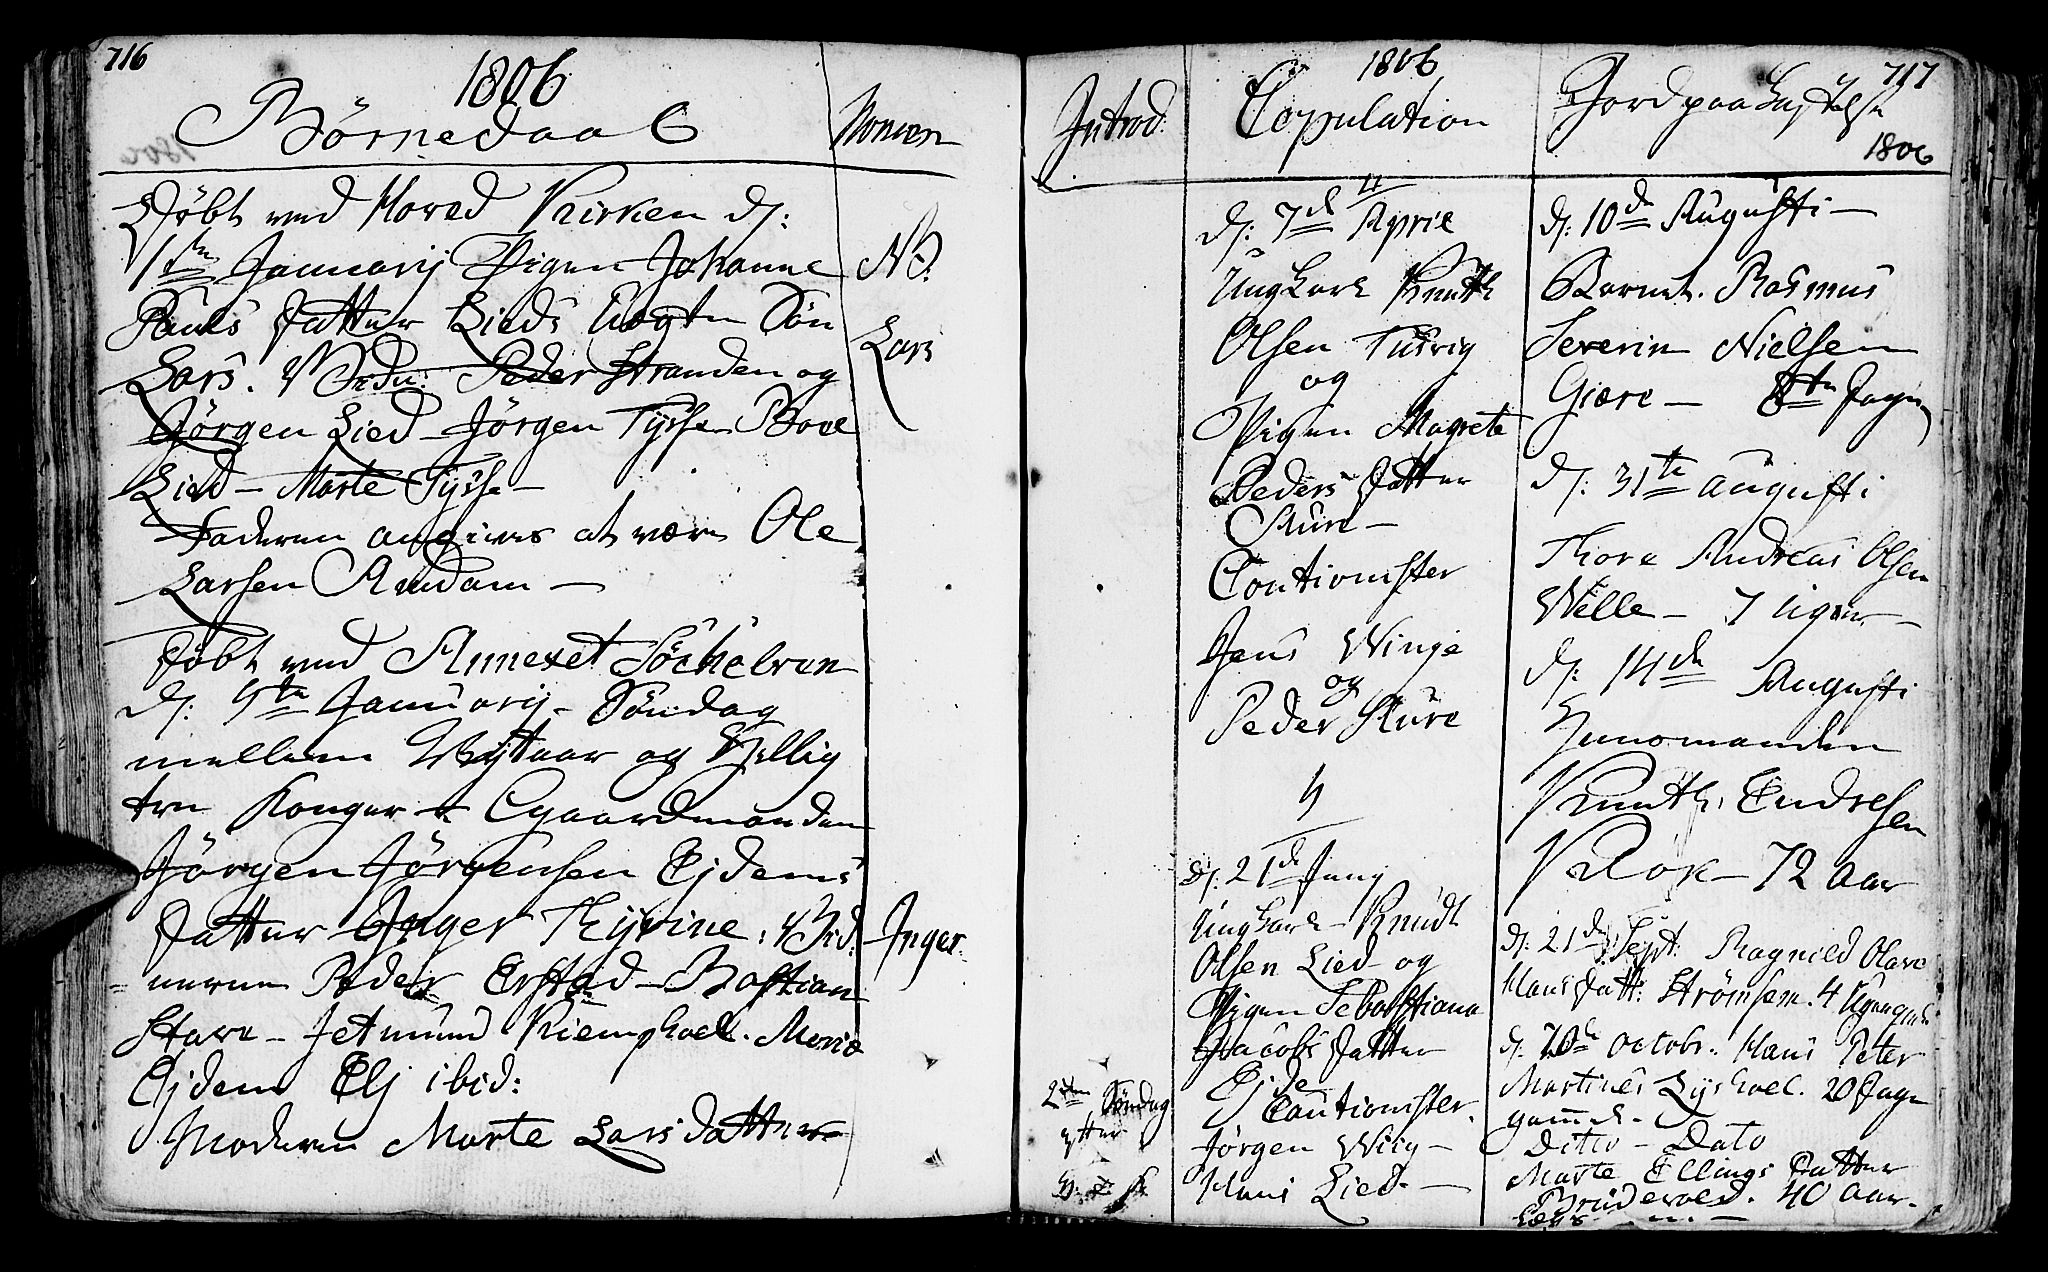 716
1806
Børnedaab
Nomen
Døbt ved Hoved Kirken d:
1ste Januarij Pigen Johanne
NB.
Pauls Datter Lieds uægte Søn
Lars. Fadu: Peder Stranden og
Lars
Jørgen Lied - Jørgen Tysse Boel
Lied - Marte Tysse -
Faderen angives at være Ole
Larsen Aandam -
Døbt ved Annexet Söchelven
d: 5te Januarij - Søndag
mellem Nytaar og Hellig
tre Konger - Gaardmanden
Jørgen Jørgensen Ejdems
Datter Inger Thrine: Fad:
Inger.
nerne Peder Erstad - Bastian
Stave - Jetmund Kiemphoel. Maria
Ejdem Elj ibid:
Moderen Marte Larsdatter
Introd.
2den Søndag
efter
1806
Copulation
4
d: 7de April
Ungkarl Knuth
Olsen Tusvig
og
Pigen Magrete
Peders Datter
Aure -
Cautionister
Jens Winje
og
Peder Aure
5
d: 21de Junj
Ungkarl - Knudt
Olsen Lied - og
Pigen Sebasttiana
Jacobs Datter
Ejde
Cautionister.
Jørgen Wiig -
Hans Lied. -
717
Jordpaakastelse
1806
d: 10de Augusti -
Barnet. Rasmus
Severin Nielsen
Giære - 8te Dage
d: 31te Augusti
Thore Andreas Olsen
Welle - 7 Uger -
d: 14de Augusti
Huusmanden
Knuth. Endresen
Klok - 72 Aar
d: 21de Sept: Ragnild Olave
Hans Datt: Strømsem. 4 Uger gml:
d: 20de Octobr: Hans Peter
Martines Lyshoel. 20 Dage
gammel. -
Ditto - Dato
Marte Ellings Datter
Brudevold. 40 Aar.